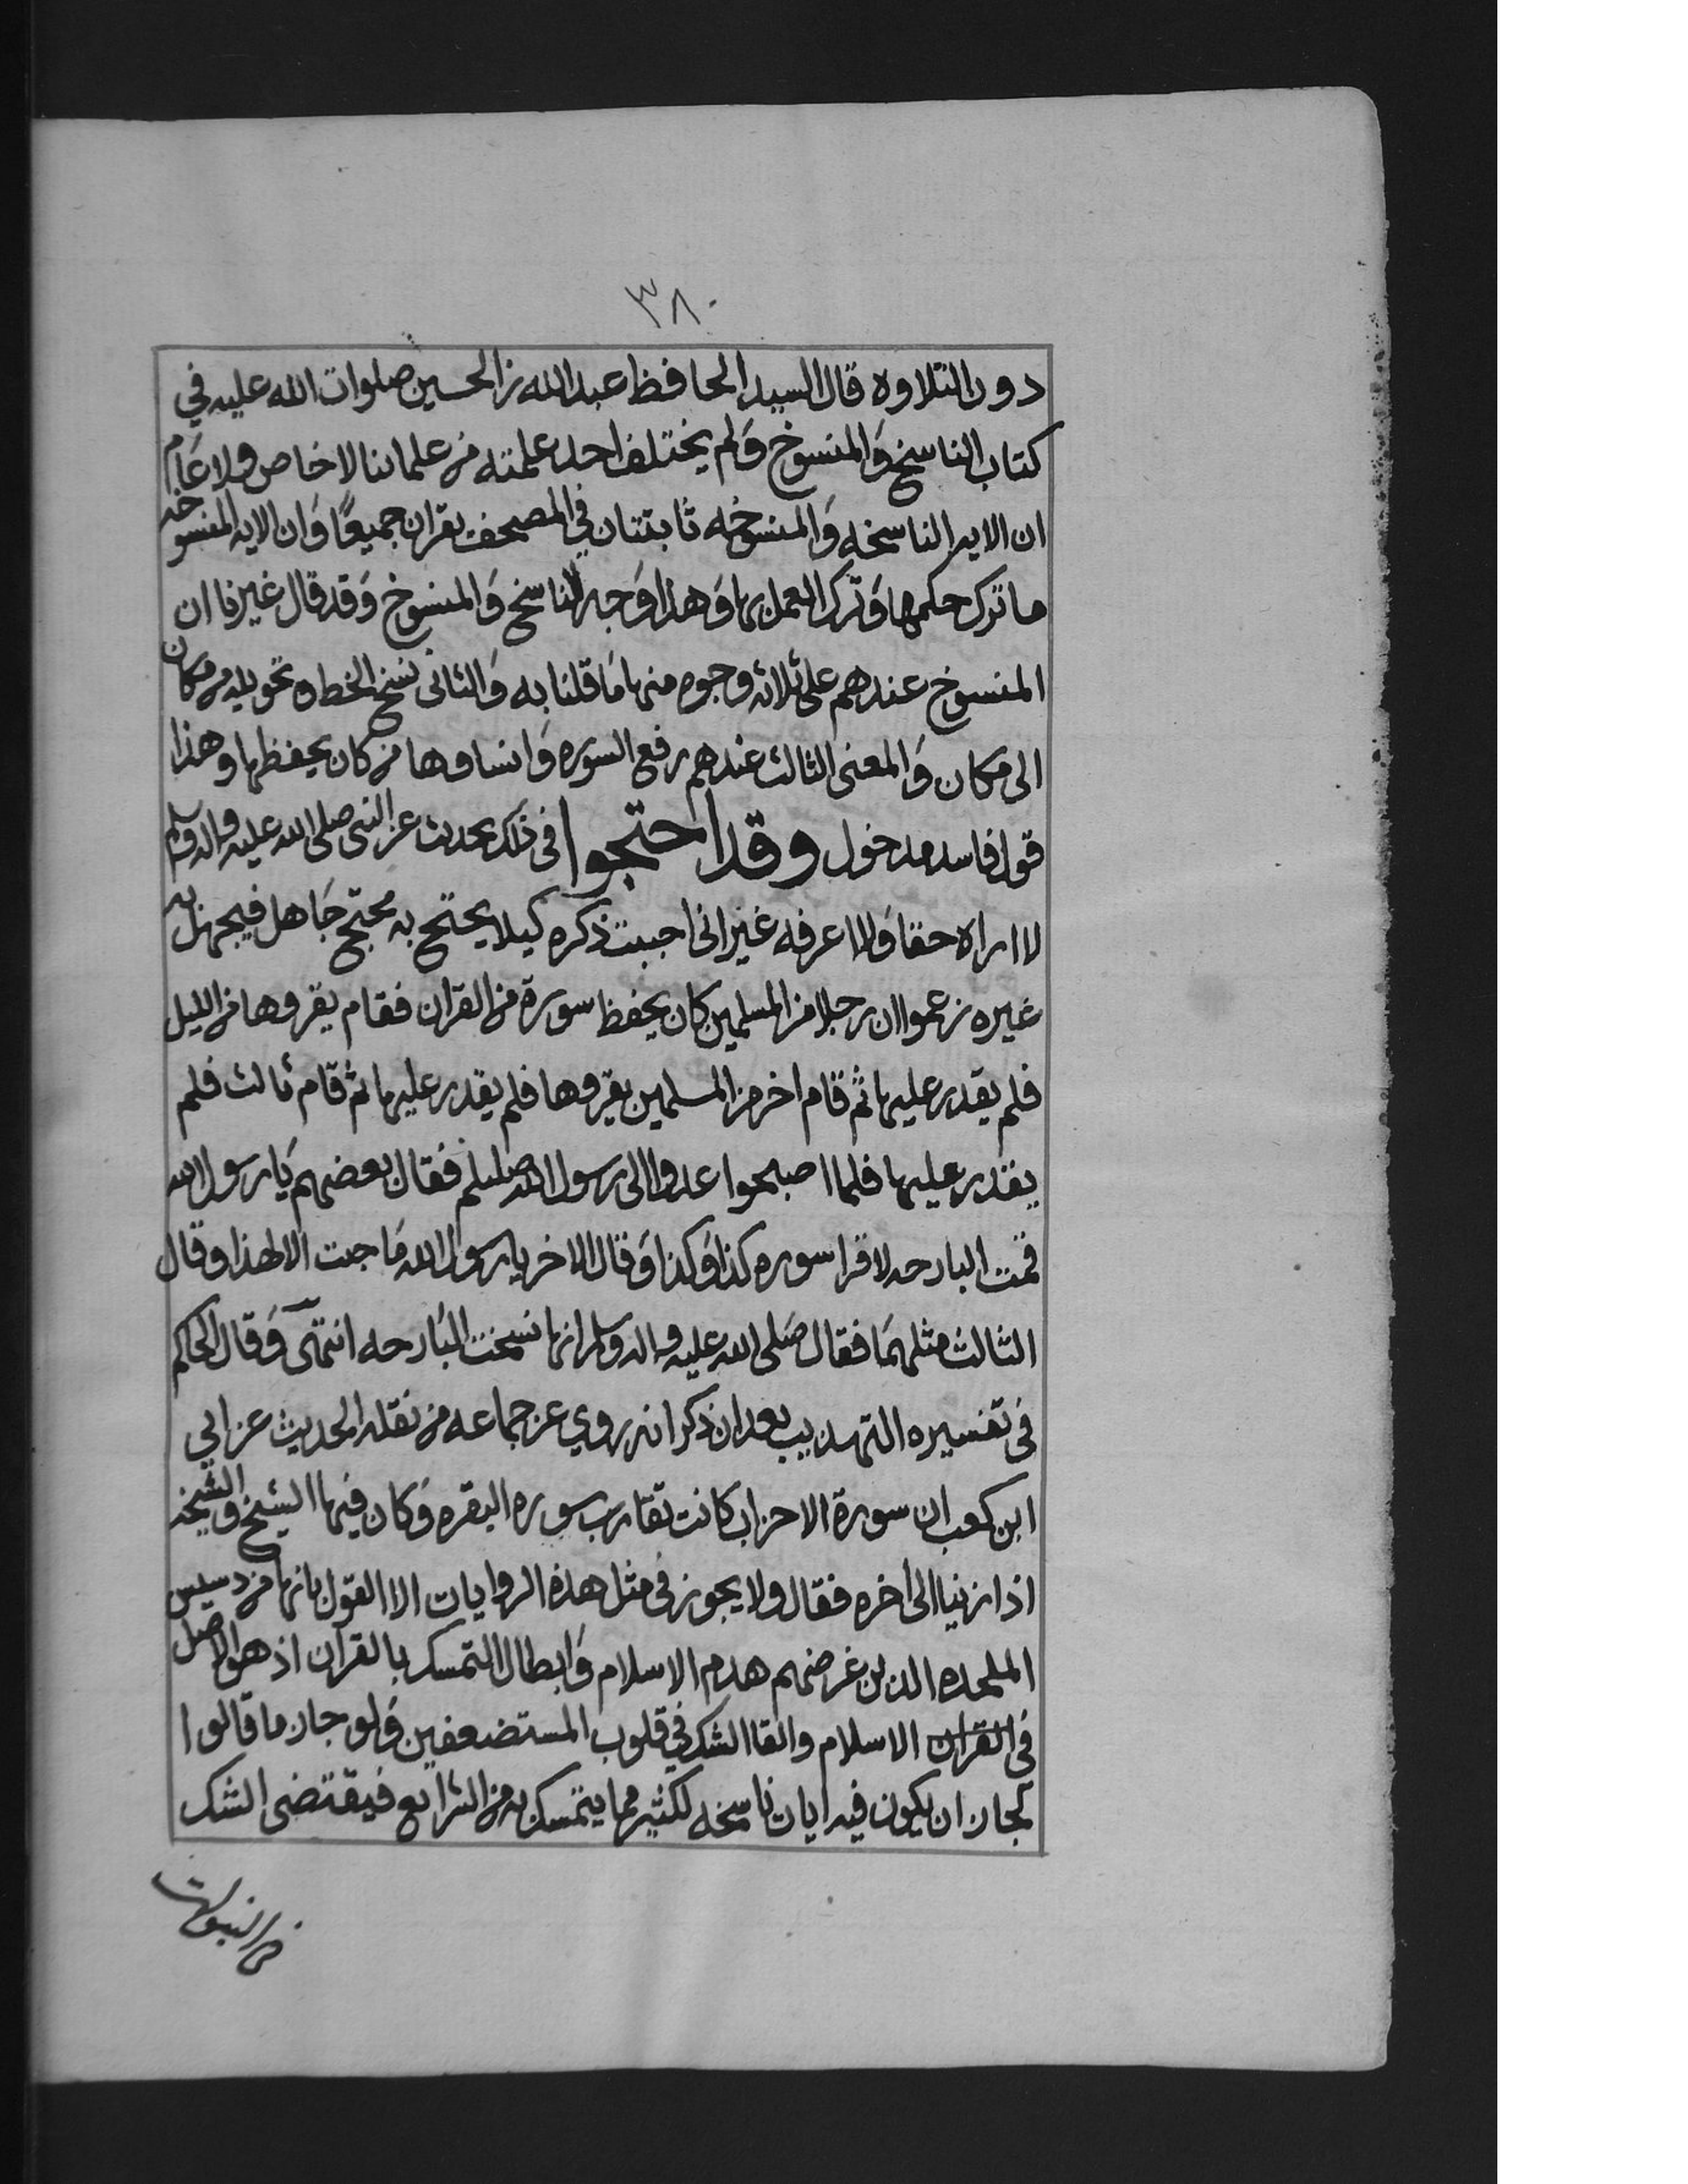 ٣٨٠
دون التلاوه قال السيد الحافظ عبد الله بن الحسين صلوات الله عليه في
كتاب الناسخ وَالمنسوخ وَلم يختلف احد علمته من علمائنا لا خاص ولا عَام
ان الايه الناسخه وَالمنسوخه ثابتتان في المصحف يقران جميعًا وَان الايه المنسوخه
ما ترك حكمها وَترك العمل بها وَهذا وَجه الناسخ وَالمنسوخ وَقد قال غيرنا ان
المنسوخ عندهم على ثلاثه وجوه منها مَا قلنا به وَالثاني نسخ الخط وتحويله من مكان
الى مكان وَالمعنى الثالث عندهم رفع السوره وَانساوها من كان يحفظها وهذا
قول فاسد مدخول وقد احتجوا في ذلك بحديث عن النبي صلى الله عليه واله وسلم
لا اراه حقا وَلا اعرفه غير اني احببت ذكره كيلا يحتج به محتج جَاهل فيجهل به
غيره زعموا ان رجلا من المسلمين كان يحفظ سورة من القران فقام يقروها من الليل
فلم يقدر عليها ثم قام اخر من المسلمين يقروها فلم يقدر عليها ثم قام ثالث فلم
يقدر عليها فلما اصبحوا غدوا الى رسول الله صللم فقال بعضهم يَا رسول الله
قمت البارحه لاقرا سوره كذا وَكذا وَقال الاخر يا رسول الله مَا جت الا لهذا وقال
الثالث مثلهمَا فقال صَلى الله عليه واله وسلم انها نسخت البَارحه انتهى وَقال الحاكم
في تفسيره التهديب بعد ان ذكر انه روي عن جماعه من نقله الحديث عن ابي
ابن كعب ان سورة الاحزاب كانت تقارب سوره البقره وَكان فيها الشيخ والشيخه
اذا زنيا الى اخره فقال ولا يجوز في مثل هذه الروايات الا القول بانها من دسيس
الملحده الذين غرضهم هدم الاسلام وَابطال التمسك بالقرآن اذ هو الاصل
في القران الاسلام والقا الشك في قلوب المستضعفين وَلو جاز ما قالوا
لجاز ان يكون فيه ايات ناسخه لكثير مما يتمسك به من الشرايع فيقتضي الشك